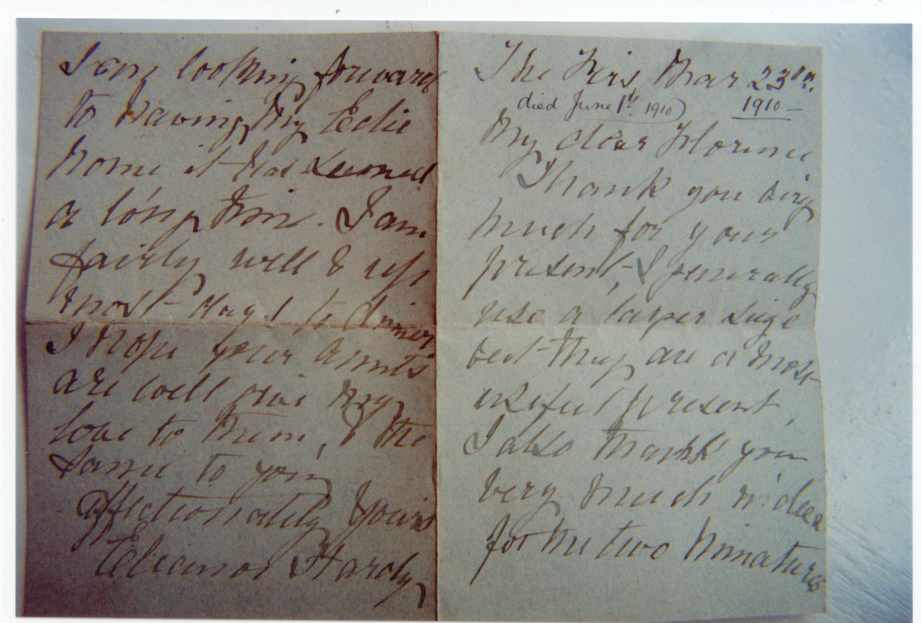 The Firs, Mar 23rd.
died June 1st. 1910) 1910 —
My dear Florence
Thank you very
much for your
present, I generally
use a larger size
but they are a most
useful present,
I also thank you
very much
for the two Miniatures
I am looking forward
to having my Edie
home it has seemed
a long time. I am
fairly well & up
most days to dinner
I hope your Aunts
are well give my
love to them, & the
same to you
Affectionately Yours
Eleanor Hardy